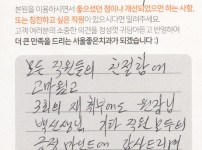 본원을 이용하시면서 좋으셨던 점이나 개선되었으면 하는 사항,
또는 칭찬하고 싶은 직원이 있으시다면 말씀해 주세요.
고객 여러분의 소중한 의견을 경청몇 귀담아듣고 반영하여
더 큰 만족을 드리는 서울좋은치과가 되겠습니다 :)
모든 직원들의 친절함에
고마웁고
3회의 재 치료에도 원장님
백선생님, 기타 직원 모두의
긍정 마인드에 감사드리며